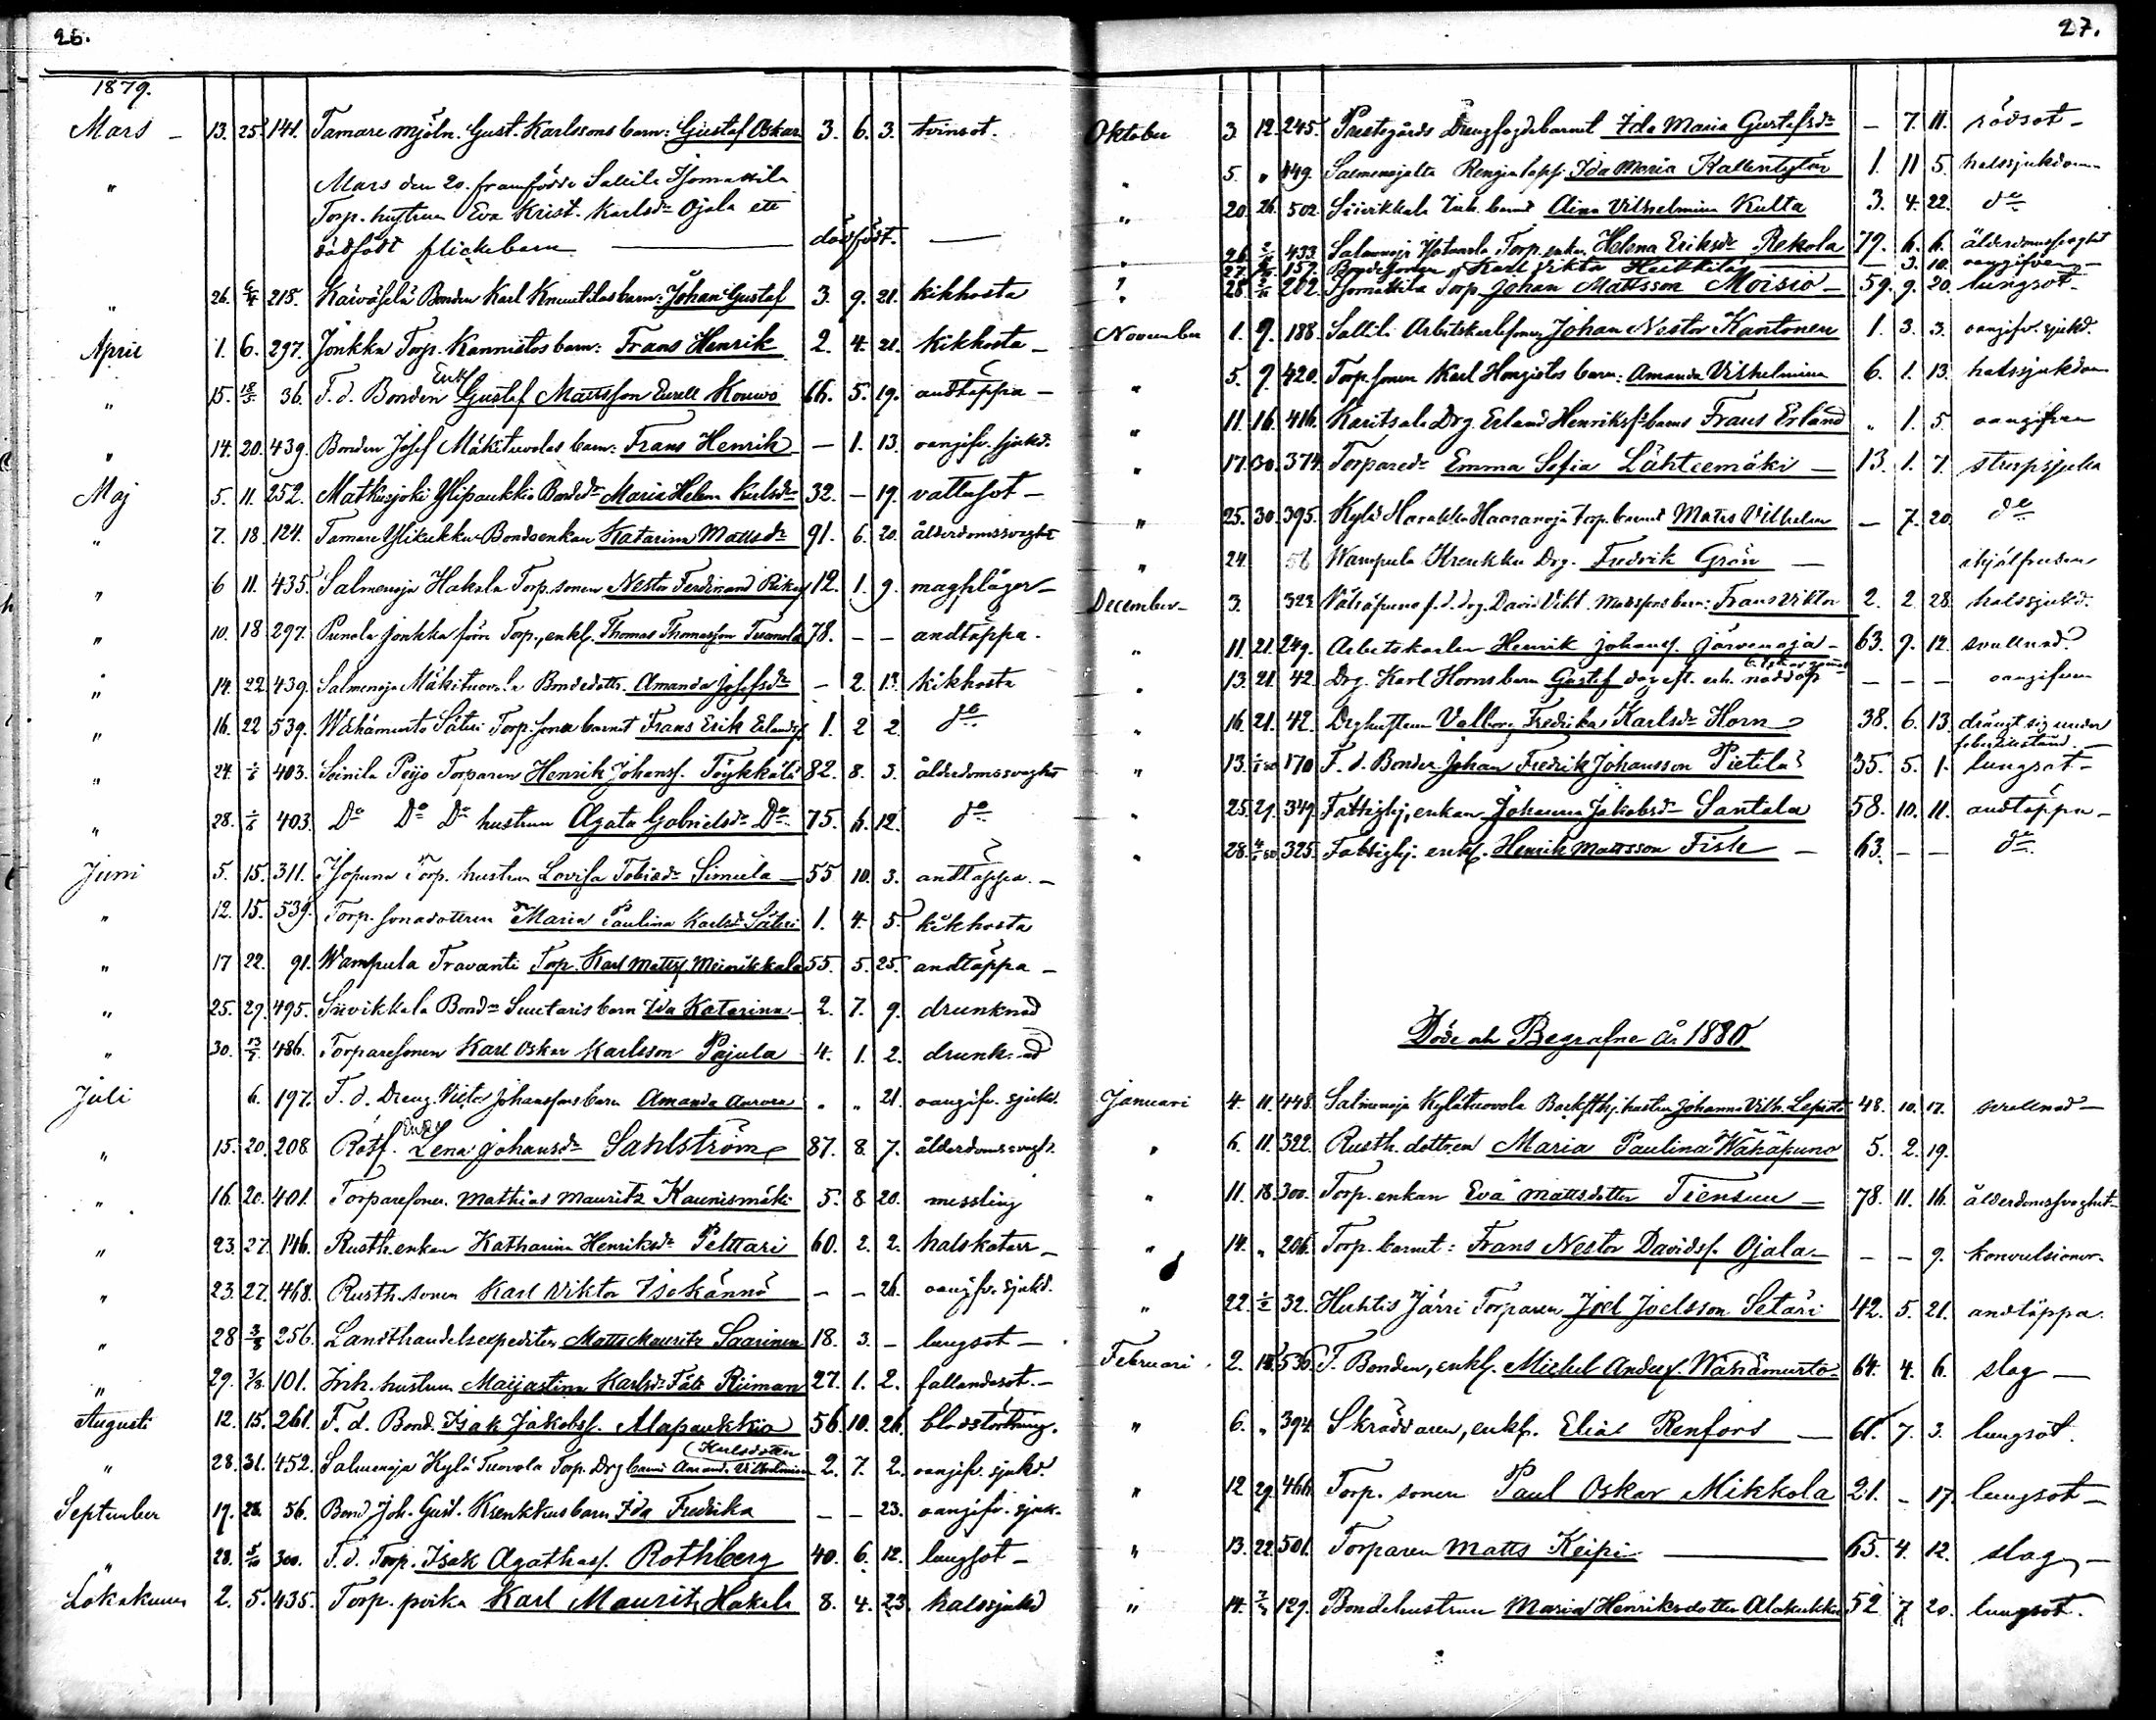 26.
1879.
Mars - 13. 25. 141. Tamare mjöln. Gust. Karlssons barn: Gustaf Oskar 3. 6. 3. tvinsot.
" Mars den 20. framfödde Sallila Isomattila
Torp. hustrun Eva Krist. Karlsdr Ojala ett
dödfödt flickebarn dödfödt.
" 26. 6/4 215. Käväsilä Bonden Karl Knuutilas barn: Johan Gustaf 3. 9. 21. kikhosta
April 1. 6. 297. Jonkka Torp. Kannistos barn: Frans Henrik 2. 4. 21. kikhosta -
" 15. 18/5 36. F. d. Bonden Enkl Gustaf Mattsson Eurell Kouvo 66. 5. 19. andtäppa -
" 14. 20. 439. Bonden Josef Mäkituovolas barn: Frans Henrik - 1. 13. oangifv. sjukd.
Maj 5. 11. 252. Matkusjoki Ylipaukkio Bondedr Maria Helena Karlsdr 32. - 19. vattusot -
" 7. 18. 124. Tamare Ylikukku Bondeenkan Katarina Mattsdr 91. 6. 20. ålderdomssvaghet
" 6 11. 435. Salmenoja Hakala Torp. sonen Nestor Ferdinand 12. 1. 9. magplågor -
" 10. 18 297. Punola Jonkka förre Torp., enkl. Thomas Thomasson Tuomola 78. - - andtäppa.
" 14. 22 439. Salmenoja Mäkituovola Bondedottr. Amanda Josefsdr - 2. 13. kikhosta
" 16. 22 539. Wähämurto Säteri Torp. sona barnet Frans Erik Erlandsf. 1. 2 2. do
" 24. 1/6 403. Soinila Peijo Torparen Henrik Johansf. Töykkälä 82. 8. 3. ålderdomssvaghet
" 28. 1/6 403. Do Do Do hustrun Agata Gabrielsdr Do. 75. 6. 12. do
Juni 5. 15. 311. Isopuna Torp. hustrun Lovisa Tobiasdr Simula - 55 10. 3. andtäppa. -
" 12. 15. 539. Torp. sonadottren Maria Paulina Karlsdr Säteri 1. 4. 5. kikhosta
" 17 22. 91. Wampula Fravanti Torp. Karl Mattsf. Meinikkala 55. 5. 25. andtäppa -
" 25. 29. 495. Siivikkala Bondn Suutaris barn Ida Katarina - 2. 7. 9. drunknad
" 30. 13/7 486. Torparesonen Karl Oskar Karlsson Pajula 4. 1. 2. drunknad
Juli 6. 197. F. d. Dreng. Victor Johanssons barn Amanda Aurora " " 21. oangifv. sjukd.
" 15. 20. 208. Rotf. Enka Lena Johansdr Sahlström 87. 8. 7. ålderdomssvagh.
" 16. 20. 401. Torparesonen Mathias Mauritz Kaunismäki 5. 8 20. messling
" 23. 27. 146. Rusth. enkan Katharina Henriksdr Pelttari 60. 2. 2. halskatarr -
" 23. 27. 468. Rusth. sonen Karl Viktor Isokännö - - 26. oangifv. sjukd.
" 28 3/8 256. Landthandelsexpediten Matts Mauritz Saarinen 18. 3. - lungsot -
" 29. 3/8. 101. Inh. hustrun Maijastina Karlsdr Fält Riiman 27. 1. 2. fallandesot. -
Augusti 12. 15. 261. F. d. Bond. Isak Jakobsf. Alapaukkio 56. 10. 26. blodstörtning.
" 28. 31. 452. Salmenoja Kylä Tuovola Torp. Drg barn Amanda Vilhelmina (Karlsdotter 2. 7. 2. oangifv. sjukd.
September 17. 28. 56. Bond Joh. Gust. Krenkkus barn Ida Fredrika - - 23. oangifv. sjuk.
" 28. 5/10 300. F. d. Torp. Isak Agathasf. Rothberg 40. 6. 12. lungsot -
2. 5. 435. Torp. poika Karl Maurits Hakala 8. 4. 23. halssjukd
27.
Oktober 3. 12. 245. Prestgårds Drengfogdebarnet Ida Maria Gustafsdr - 7. 11. rödsot -
" 5. " 449. Salmenojalta Rengin lapsi Ida Maria Kallentytär 1. 11 5. halssjukdom
" 20. 26. 502. Siivikkala Inh. barnet Aina Vilhelmina Kulta 3. 4. 22. do
" 26. 2/11 433. Salmenoja Torp. enkan Helena Eriksdr Rekola 79. 6. 6. ålderdomssvaghet
" 27. 157. Bondesonen Karl Viktor Heikkilä - 3. 10. oangifven -
" 28. 2/11 202. Isomattila Torp. Johan Mattsson Moisio - 59. 9. 20. lungsot -
November 1. 9. 188. Sallila Arbetskarlssonen Johan Nestor Kantonen 1. 3. 3. oangifv. sjukd.
" 5. 9. 420. Torp. sonen Karl Hongistos barn: Amanda Vilhelmina 6. 1. 13. halssjukdom
" 11. 16. 416. Karitsala Drg. Erland Henrikss barns Frans Erland " 1. 5. oangifven
" 17. 30. 374. Torparedr Emma Sofia Lähteemäki - 13. 1. 7. strupsjuka
" 25. 30. 395. Kylä Harakka Haaranoja Torp. barnet Matts Vilhelm - 7. 20. do
" 24. 56 Wampula Krenkku Drg. Fredrik Grön - ihjälfrusen
December - 3. 323. Vähäpuno f. d. drg. David Vikt. Mattssons barn: Frans Viktor 2. 2 28. halssjukd.
" 11. 21. 249. Arbetskarlen Henrik Johansf. Järvenoja - 63. 9. 12. svullnad
" 13. 21. 42. Drg. Karl Horns barn Gustaf dog eft. erh. nöddop - - - oangifven
" 16. 21. 42. Drghustrun Valborg Fredrika Karlsdr Horn 38. 6. 13. dränkt sig under
febertillstånd. -
" 13. 1/1 80 170 F. d. Bonden Johan Fredrik Johansson Pietilä 35. 5. 1. lungsot -
" 25. 29. 349. Fattighj. enkan Johanna Jakobsdr Santala 58. 10. 11. andtäppa -
" 28. 4/1 80 325. Fattighj. enkl. Henrik Mattsson Fisk - 63. - - do
Döde och Begrafne År 1880.
Januari 4. 11. 448. Salmenoja Kylätuovola Backsthj. hustrun Johanna Vilh. Lepistö 48. 10. 17. svullnad -
" 6. 11. 322. Rusth. dottren Maria Paulina Wähäpuno 5. 2. 19.
" 11. 18. 300. Torp. enkan Eva Mattsdotter Tiensuu - 78. 11. 16. ålderdomssvaghet -
" 14. " 206. Torp. barnet: Frans Nestor Davidsf. Ojala - - - 9. konvulsioner.
" 22. 1/2 32. Huhtis Järri Torparen Joel Joelsson Setäri 42. 5. 21. andtäppa.
Februari 2. 15. 536. F. Bonden, enkl. Michel Andersf. Wähämurto - 64. 4. 6. slag -
" 6. " 394. Skräddaren, enkl. Elias Renfors - 61. 7. 3. lungsot.
" 12 29. 466. Torp. sonen Paul Oskar Mikkola 21. - 17. lungsot -
" 13. 22. 501. Torparen Matts Keipi - 65. 4. 12. slag -
" 14. 129. Bondehustrun Maria Henriksdotter Alakukku 52 7 20. lungsot.